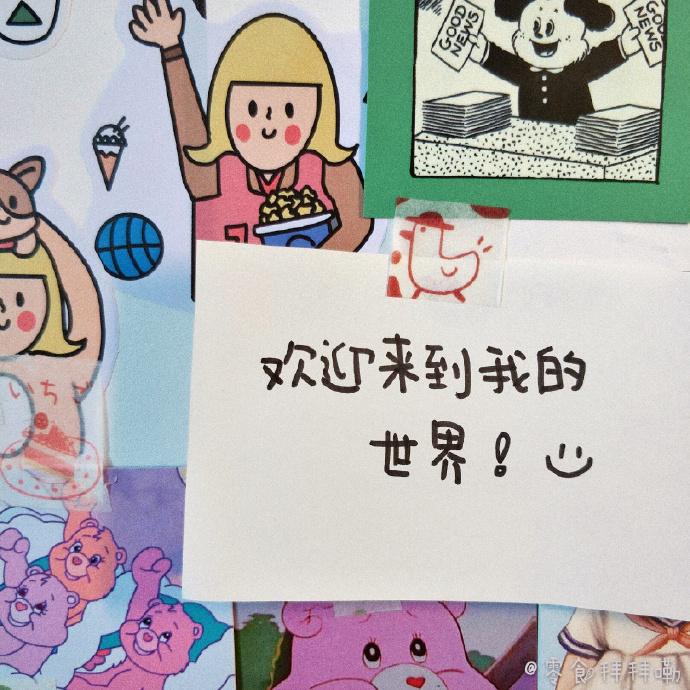 GOOD NEWS
GOOD NEWS
いちご
欢迎来到我的
世界！
@零食拜拜嘞